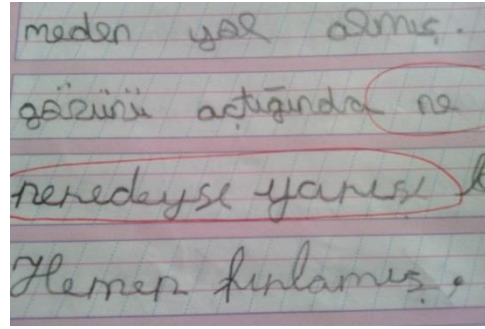 meden yol almış.
gözünü açtığında ne
neredeyse yarışı
Hemen fırlamış.